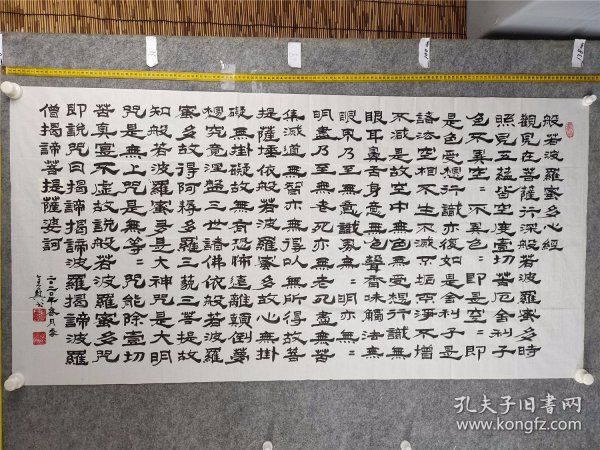 般若波羅蜜多心經
觀自在菩薩行深般若波羅蜜多時
照見五蘊皆空度壹切苦厄舍利子
色不異空=不異色=即是空=即
是色受想行識亦復如是舍利子是
諸法空相不生不滅不垢不淨不增
不減是故空中無色無受想行識無
眼耳鼻舌身意無色聲香味觸法無
眼界乃至無意識界無=明亦無=
明盡乃至無老死亦無老死盡無苦
集滅道無智亦無得以無所得故菩
提薩埵依般若波羅蜜多故心無掛
礙無掛礙故無有恐怖遠離顛倒夢
想究竟涅盤三世諸佛依般若波羅
蜜多故得阿耨多羅三藐三菩提故
知般若波羅蜜多是大神咒是大明
咒是無上咒是無等=咒能除壹切
苦真實不虛故說般若波羅蜜多咒
即說咒曰揭諦揭諦波羅揭諦波羅
僧揭諦菩提薩婆訶
二〇二〇年春月
孔夫子旧书网
www.kongfz.com